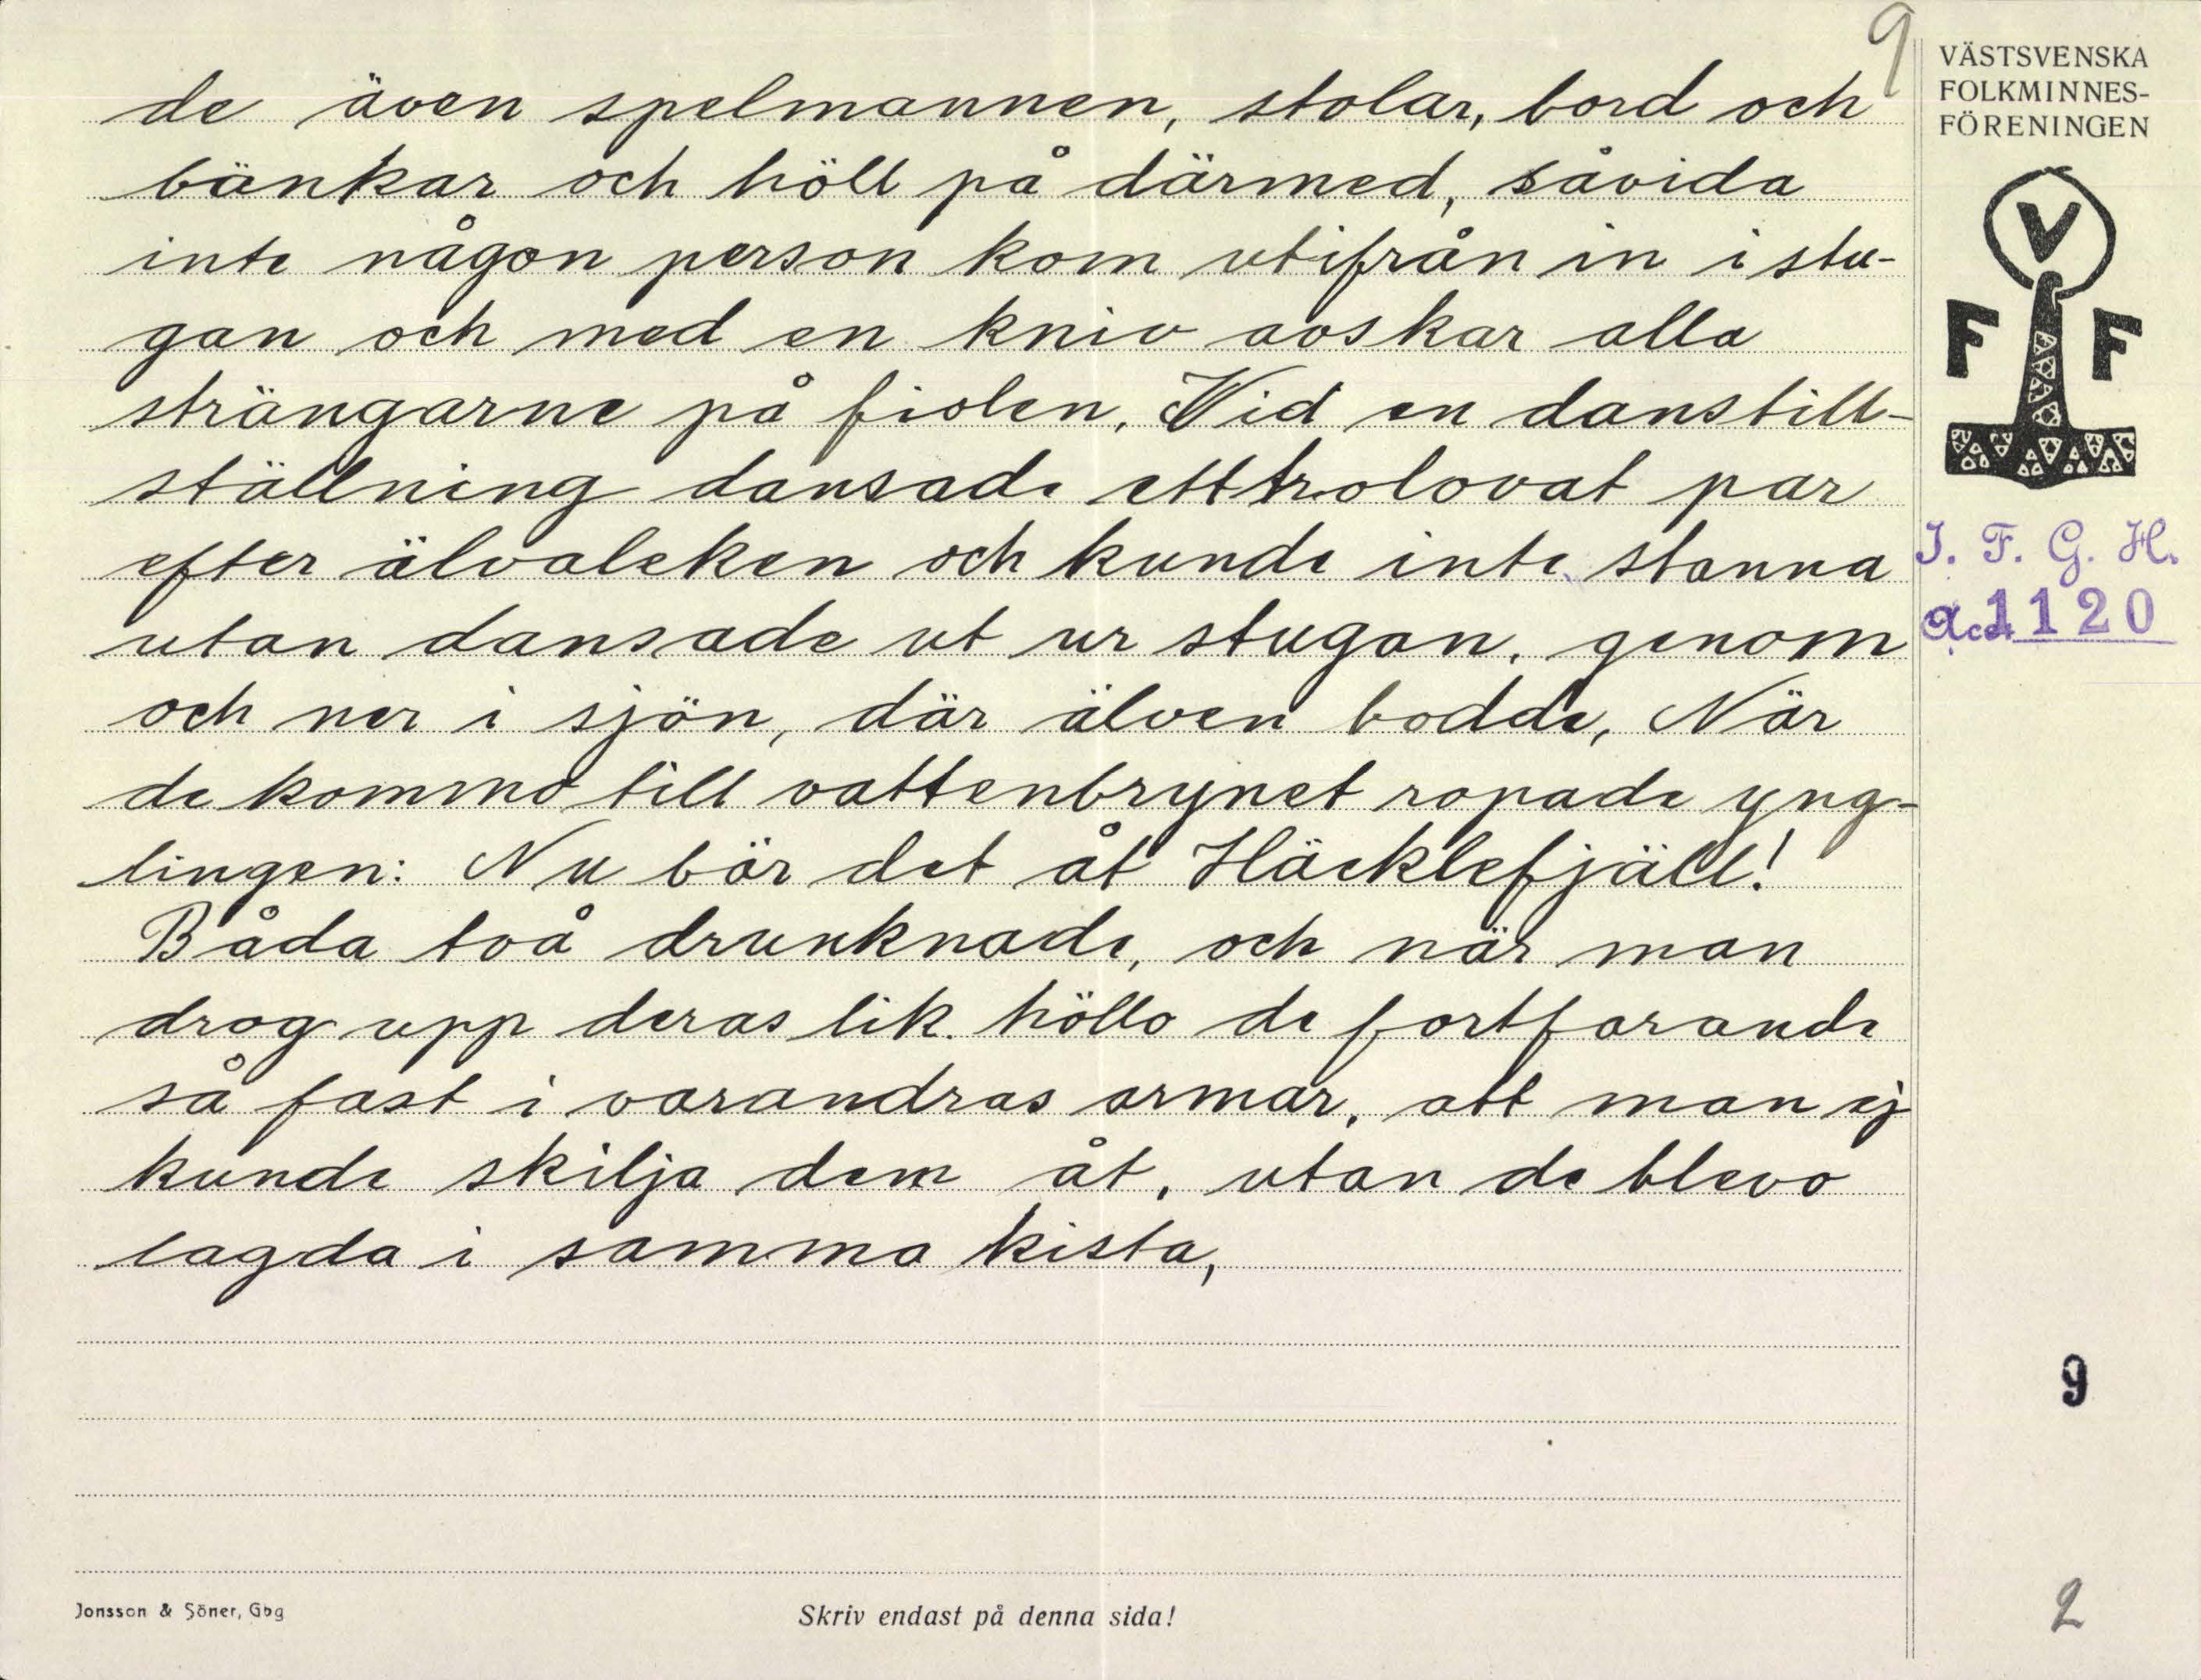 9
de även spelmannen, stolar, bord och
bänkar och höll på därmed, såvida
inte någon person kom utifrån in i stu-
gan och med en kniv avskar alla
strängarne på fiolen. Vid en danstill-
ställning dansade ett trolovat par
efter älvaleken och kunde inte stanna
utan dansade ut ur stugan, genom
och ner i sjön, där älven bodde, När
de kommo till vattenbrynet ropade yng-
lingen: Nu bär det åt Häcklefjäll!
Båda två drunknade, och när man
drog upp deras lik. höllo de fortfarande
så fast i varandras armar, att man ej
kunde skilja dem åt, utan de blevo
lagda i samma kista,
Jonsson & Söner, Gbg
Skriv endast på denna sida!
VÄSTSVENSKA
FOLKMINNES-
FÖRENINGEN
V
F F
I. F. G. H.
Acc. 1120
9
2